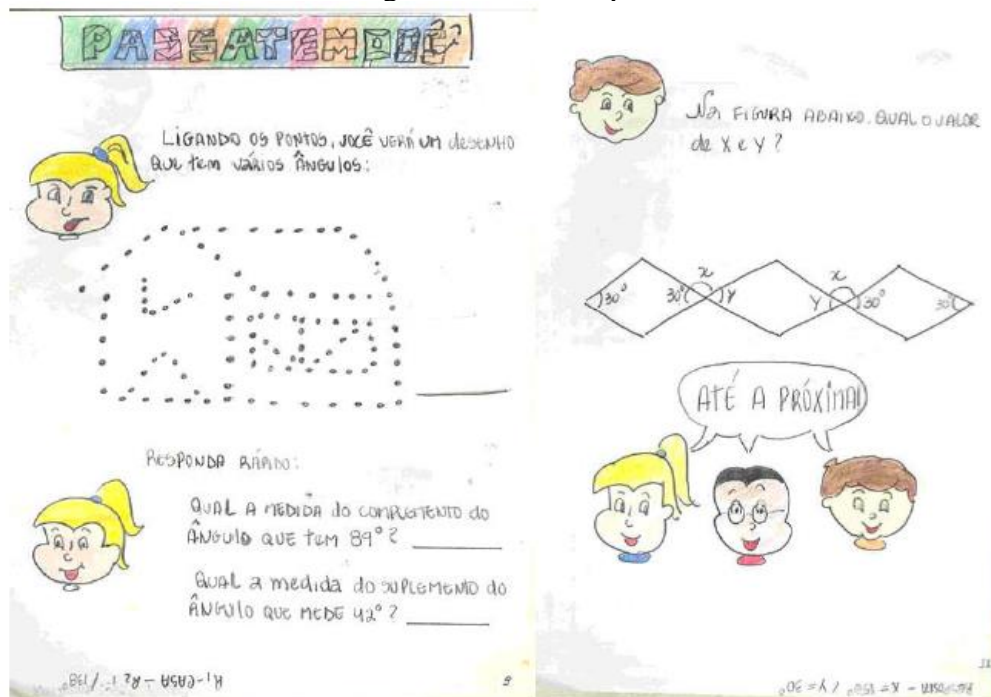 PASSATEMPO
LIGANDO OS PONTOS, VOCÊ VERÁ UM desENHO
QUE tem VÁRIOS ÂNGULOS:
RESPONDA RÁPIDO:
QUAL A MEDIDA do COMPLEMENTO do
ÂNGULO QUE tem 89°?
QUAL a medida do SUPLEMENTO do
ÂNGULO QUE MEDE 42°?
R1-CASA - R2 1°/138°
5
Na FIGURA ABAIXO, QUAL O VALOR
de X e Y?
30° 30° x y y x 30° 30°
ATÉ A PRÓXIMA!
RESPOSTA - X = 150° / Y = 30°